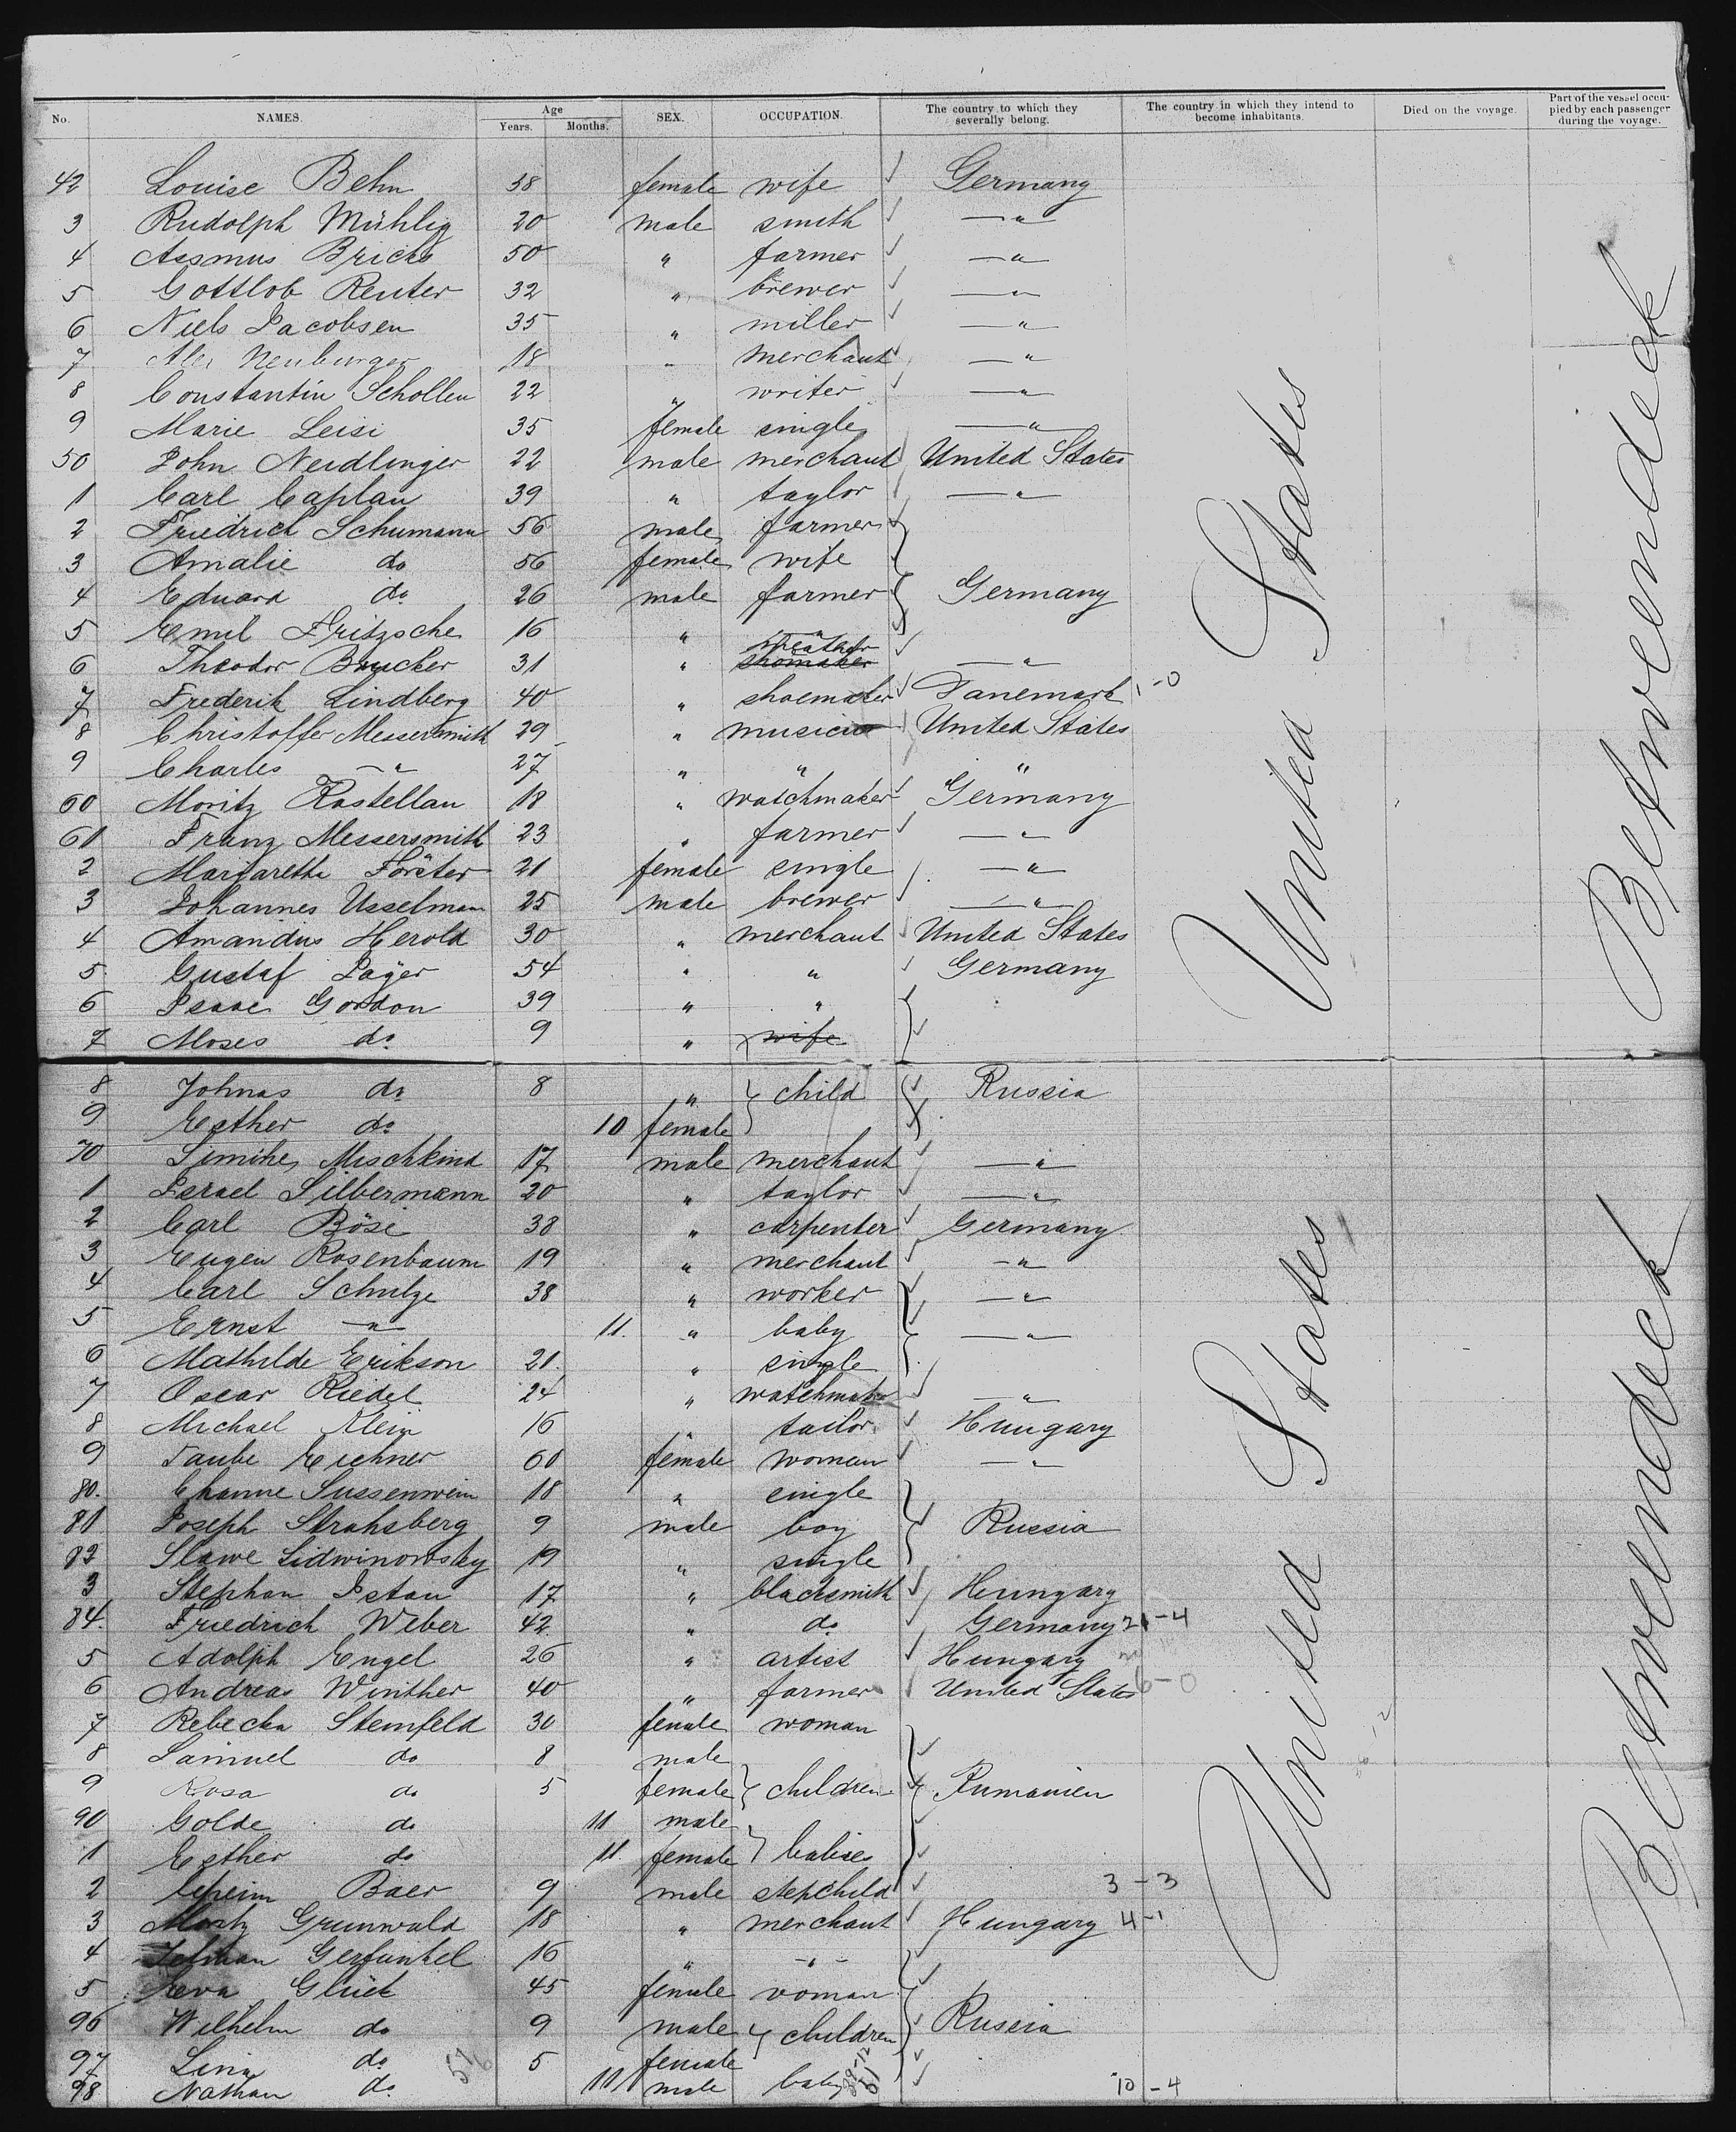 No. NAMES. Age Years. Months. SEX. OCCUPATION. The country to which they severally belong. The country in which they intend to become inhabitants. Died on the voyage. Part of the vessel occupied by each passenger during the voyage.
42 Louise Behn 38 female wife Germany
3 Rudolph Mühlig 20 male smith — " —
4 Assmus Bricks 50 " farmer — " —
5 Gottlob Reuter 32 " brewer — " —
6 Niels Jacobsen 35 " miller — " —
7 Alex Neuburger 18 " merchant — " —
8 Constantin Schollen 22 " writer — " —
9 Marie Leisi 35 female single — " —
50 John Neidlinger 22 male merchant United States
1 Carl Caplan 39 " taylor — " —
2 Friedrich Schumann 56 male farmer
3 Amalie do 56 female wife
4 Eduard do 26 male farmer Germany
5 Emil Fritzsche 16 " "
6 Theodor Brucker 31 " shomaker — " —
7 Frederik Lindberg 40 " shoemaker Danemark 1-0
8 Christoffer Messersmith 29 " musician United States
9 Charles — " — 27 " " "
60 Moritz Kastellan 18 " watchmaker Germany
61 Franz Messersmith 23 " farmer — " —
2 Margaretha Förster 21 female single — " —
3 Johannes Usselman 25 male brewer — " —
4 Amandus Herold 30 " merchant United States
5 Gustaf Jager 54 " " Germany
6 Isaac Gordon 39 " "
7 Moses do 9 " wife
8 Johnas do 8 " child Russia
9 Esther do 10 female
70 Simche Mischkind 17 male merchant — " —
1 Israel Silbermann 20 " taylor — " —
2 Carl Böse 38 " carpenter Germany
3 Eugen Rosenbaum 19 " merchant — " —
4 Carl Schulze 38 " worker — " —
5 Ernst — " — 11. " baby — " —
6 Mathilde Erikson 21. " single
7 Oscar Riedel 24 " watchmak — " —
8 Michael Klein 16 " tailor Hungary
9 Taube Eichner 60 female woman — " —
80. Channe Sussenwein 18 " single
81. Joseph Strahsberg 9 male boy Russia
82 Slawe Lidwinowsky 19 " single
3 Stephan Istan 17 " blacksmith Hungary
84. Friedrich Weber 42 " do. Germany 21-4
5 Adolph Engel 26 " artist Hungary
6 Andreas Winther 40 " farmer United States 6-0
7 Rebecka Steinfeld 30 female woman
8 Samuel do 8 male
9 Rosa do 5 female children Rumanien
90 Golde do 11 male
1 Esther do 11 female babies
2 Baer 9 male stepchild 3-3
3 Moritz Grunwald 18 " merchant Hungary 4-1
4 Gerfunkel 16 " — " —
5 Eva Glück 45 female woman
96 Wilhelm do 9 male children Russia
97 Lina do. 5 female
98 Nathan do. 11 male baby 10-4
United States
United States
Betweendeck
Betweendeck